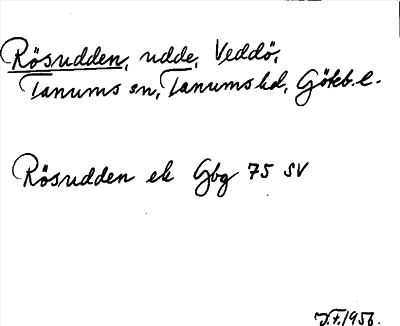 Rösudden, udde, Veddö,
Tanums sn, Tanums hd, Göteb. l.
Rösudden ek Gbg 75 SV
J.F. 1956.